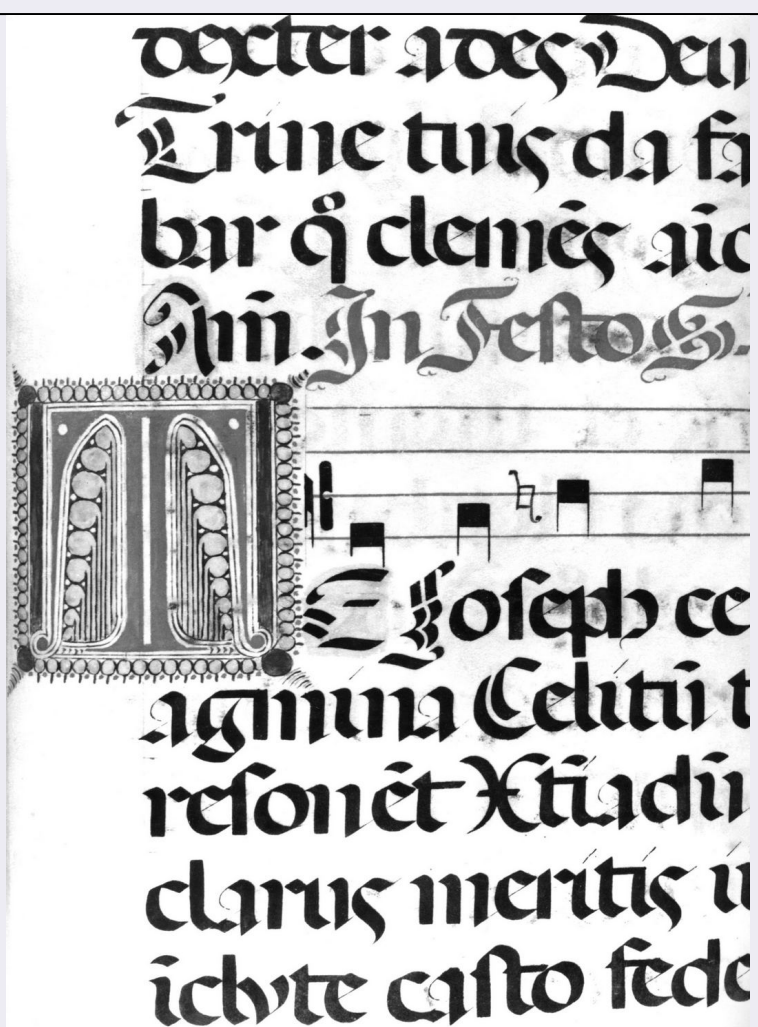 dexter ades Deu
Trine tuis da fa
bar q° clemēs aīc
Am̄. In Festo S.
TE Joseph ce
agmina Celitū t
resonēt Xtīadū
clarus meritis i
īclyte casto fede